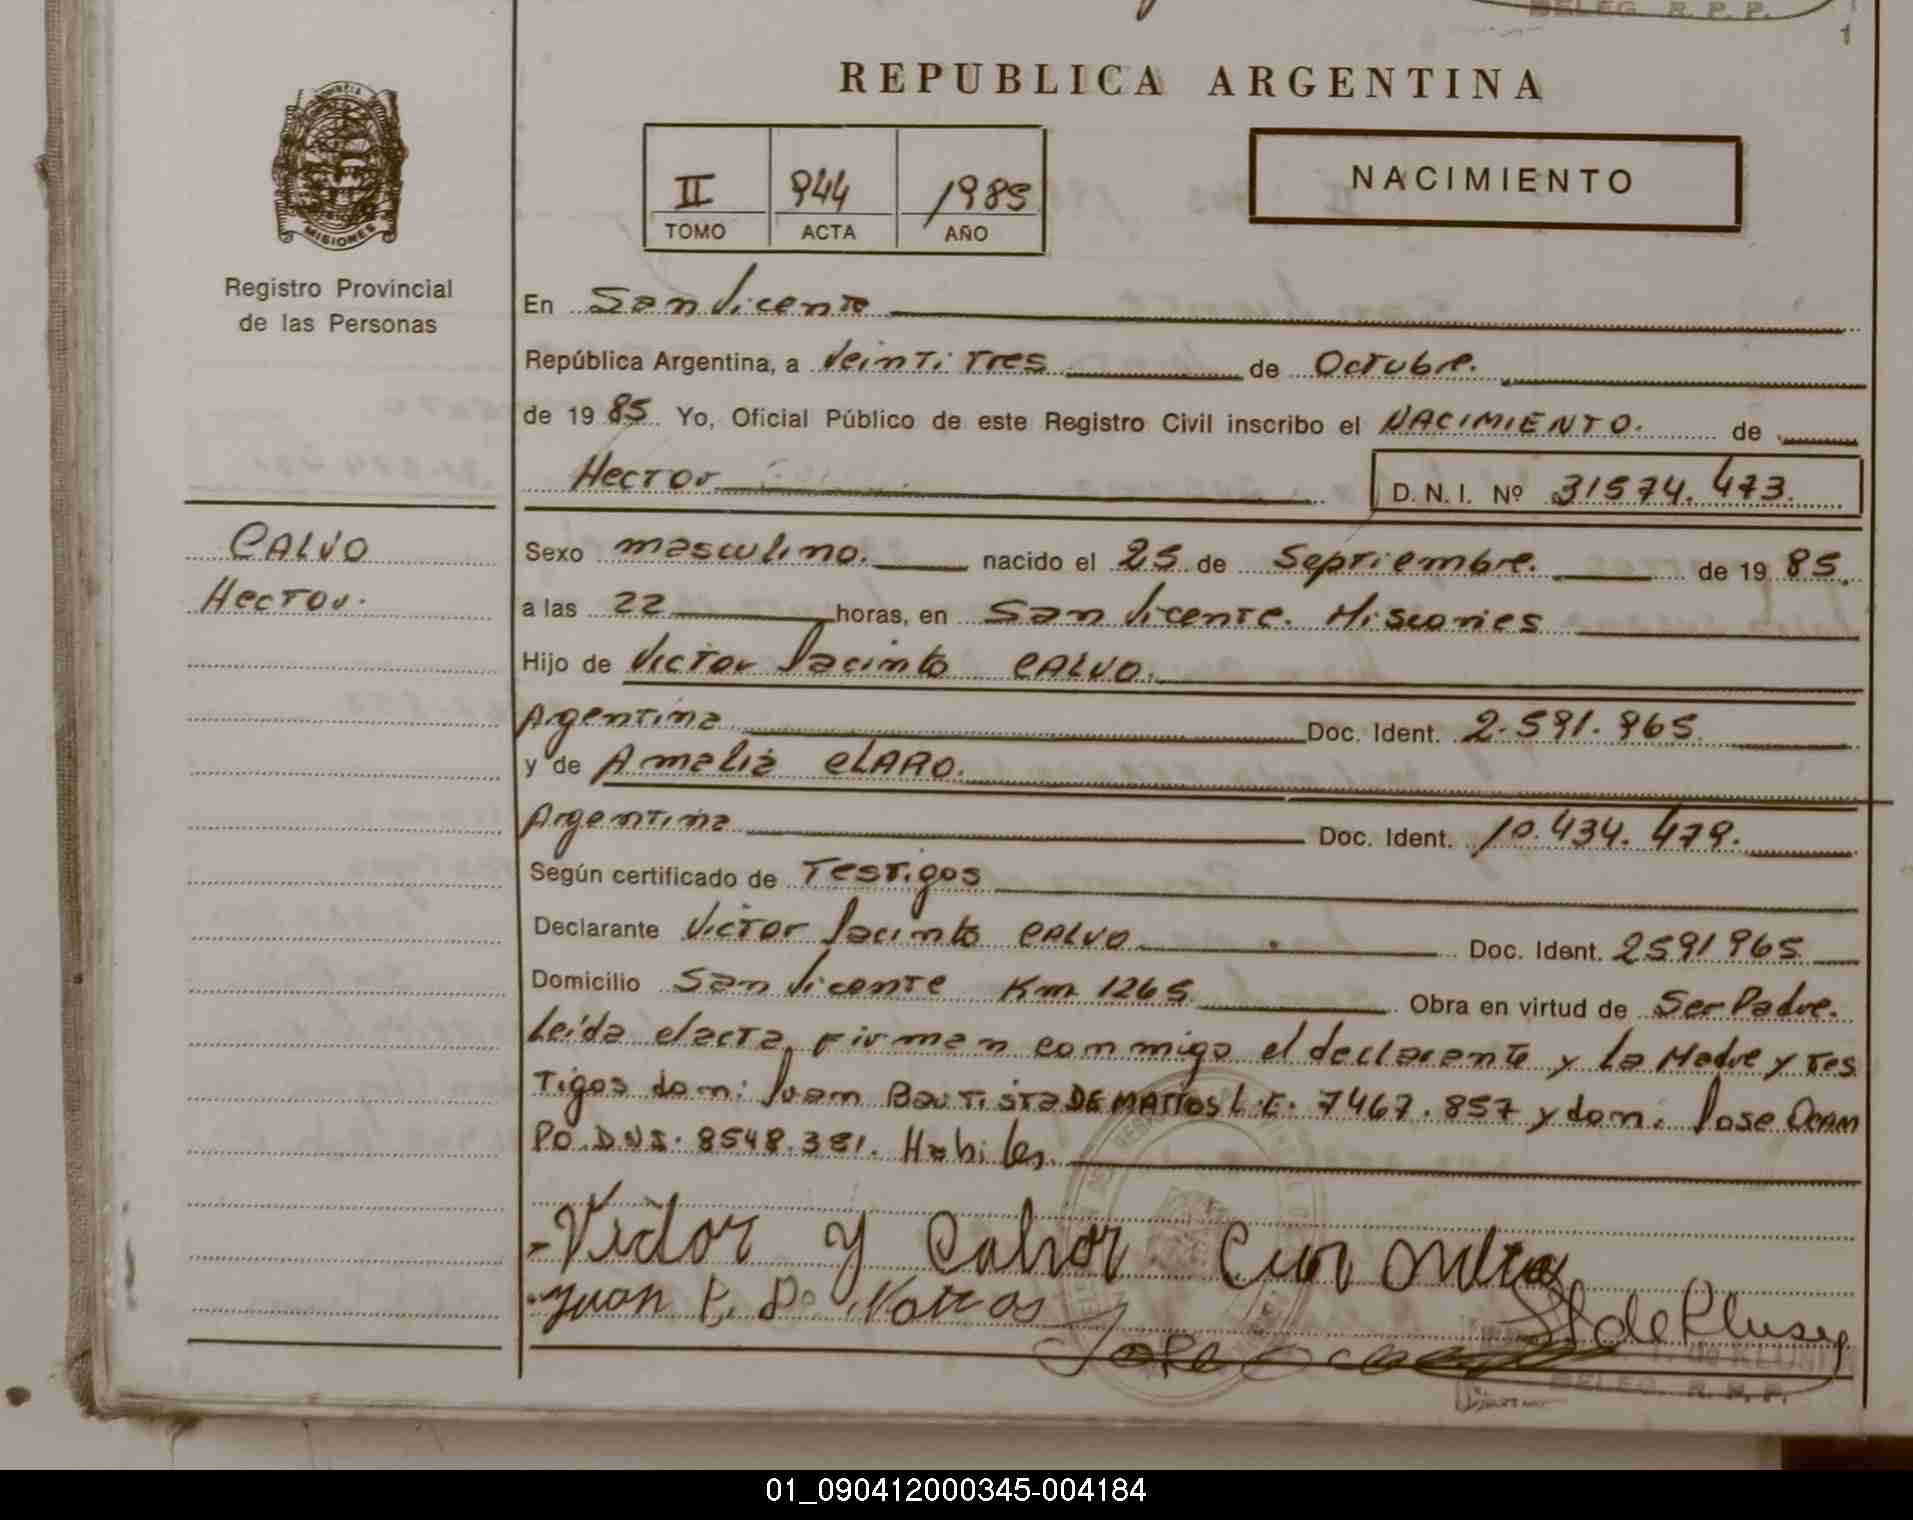 BELEG. R. P. P.
1
REPUBLICA ARGENTINA
II 944 1985
TOMO ACTA AÑO
NACIMIENTO
MISIONES
Registro Provincial
de las Personas
En San Vicente
República Argentina, a Veinti Tres de Octubre.
de 19 85 Yo, Oficial Público de este Registro Civil inscribo el NACIMIENTO. de
Hector D. N. I. Nº 31574.473.
CALVO
Hector.
Sexo masculino. nacido el 25 de Septiembre. de 19 85.
a las 22 horas, en San Vicente. Misiones
Hijo de Victor Jacinto CALVO.
Argentina Doc. Ident. 2.591.965
y de Amalia CLARO.
Argentina Doc. Ident. 10.434.479.
Según certificado de Testigos
Declarante Victor Jacinto CALVO Doc. Ident. 2591965
Domicilio San Vicente Km 1265 Obra en virtud de Ser Padre.
Leida el acta, Firman conmigo el declarante y la Madre y Tes
Tigos don: Juan Bautista DE MATTOS L.E. 7467.857 y don: Jose OCAM
PO. D.N.I. 8548.381. Habiles.
Victor Y Calvo
Juan B. De Mattos
Jose
BELEG. R. P. P.
01_090412000345-004184